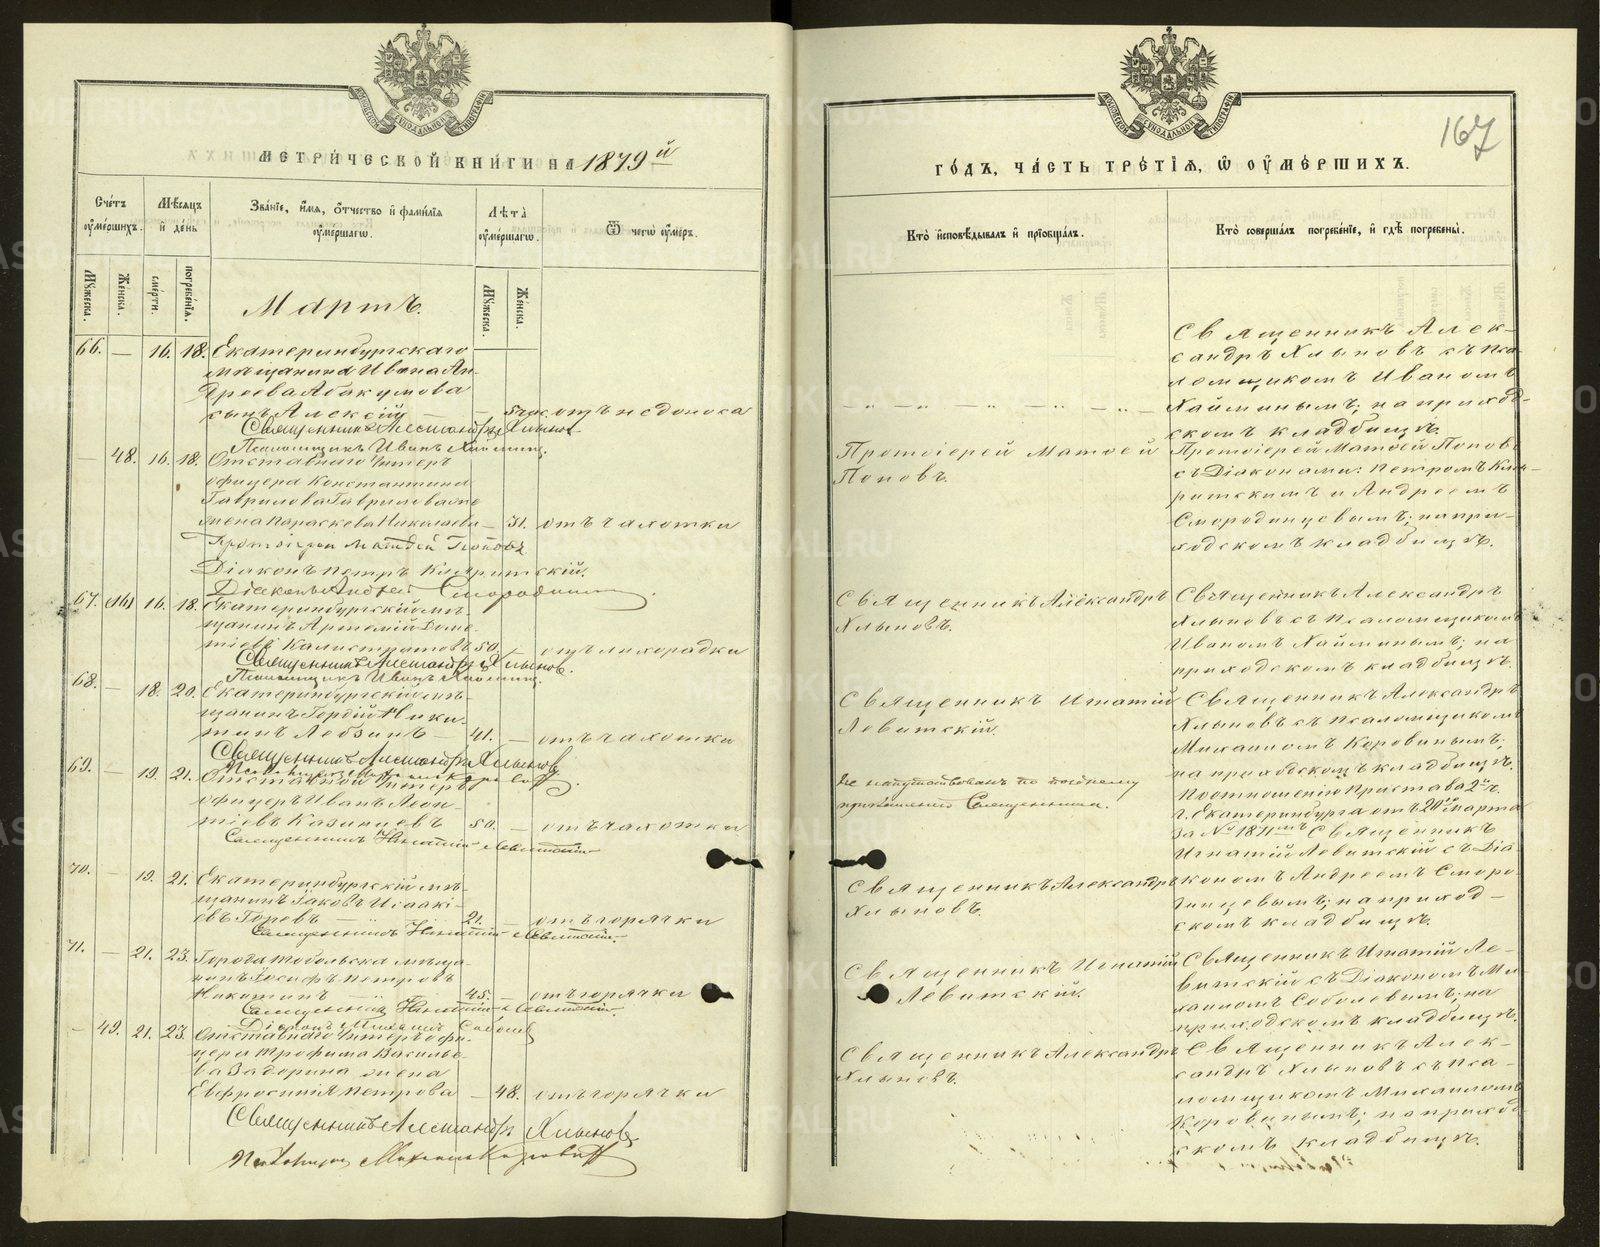 МЕТРИ́ЧЕСКОЙ КНИ́ГИ НА 1879й
Сче́тъ оу҆ме́ршихъ.
Мѣ́сяцъ и҆ де́нь
Зва́нїе, и҆́мѧ, ѻ҆́тчество и҆ фами́лїѧ оу҆ме́ршагѡ.
Лѣ́та оу҆ме́ршагѡ.
Ѿ чегѡ̀ оу҆́меръ.
Мꙋ́жеска.
Же́нска.
сме́рти.
погребе́нїѧ.
Мꙋ́жеска.
Же́нска.
Мартъ.
66. — 16. 18. Екатеринбургскаго
мѣщанина Ивана Ан-
дреева Абакумова
сынъ Алексій — — 5 час. отъ недоноса
Священникъ Александръ Хлыновъ
Псаломщикъ Иванъ Хаймин.
— 48. 16. 18. Отставнаго унтеръ
офицера Константина
Гаврилова Гаврилова
жена Параскева Николаева — 31. отъ чахотки
Протоіерей Матѳей Поповъ
Діаконъ Петръ Кляритскій.
Діаконъ Андрей Смородинцевъ
67. (16) 16. 18. Екатеринбургскій мѣ-
щанинъ Артемій Доме-
тіевъ Калистратовъ 50. — отъ лихорадки
Священникъ Александръ Хлыновъ.
Псаломщикъ Иванъ Хаймин.
68. — 18. 20. Екатеринбургскій мѣ-
щанинъ Гордій Ники-
тинъ Лобзинъ — 41. — отъ чахотки
Священникъ Александръ Хлыновъ
Псаломщикъ Михаилъ Коровинъ.
69. — 19. 21. Отставной унтеръ
офицеръ Иванъ Леон-
тіевъ Казанцевъ 50. — отъ чахотки
Священникъ Игнатій Левитскій
70. — 19. 21. Екатеринбургскій мѣ-
щанинъ Іаковъ Исаакі-
евъ Горевъ — 21. — отъ горячки
Священникъ Игнатій Левитскій.
71. — 21. 23. Города Тобольска мѣща-
нинъ Іосифъ Петровъ
Никитинъ — 45. — отъ горячки
Священникъ Игнатій Левитскій.
Діаконъ Михаилъ Соболев
— 49. 21. 23. Отставнаго унтеръ офи-
цера Трофима Василье-
ва Задорина жена
Евфросинія Петрова — 48. отъ горячки
Священникъ Александръ Хлыновъ
Псаломщик Михаилъ Коровинъ
167
ГО́ДЪ, ЧА́СТЬ ТРЕ́ТІѦ, Ѽ ОУ҆МЕ́РШИХЪ.
Кто̀ и҆сповѣ́дывалъ и҆ прїѡбща́лъ.
Кто̀ соверша́лъ погребе́нїе, и҆ гдѣ̀ погребены̀.
Священникъ Алек-
сандръ Хлыновъ съ Пса-
ломщикомъ Иваномъ
Хайминымъ; на приход-
скомъ кладбищѣ.
Протоіерей Матѳей
Поповъ.
Протоіерей Матѳей Поповъ
съ Діаконами: Петромъ Кля-
ритскимъ и Андреемъ
Смородинцевымъ; на при-
ходскомъ кладбищѣ.
Священникъ Александръ
Хлыновъ.
Священникъ Александръ
Хлыновъ съ Псаломщикомъ
Иваномъ Хайминымъ; на
приходскомъ кладбищѣ.
Священникъ Игнатій
Левитскій.
Священникъ Александръ
Хлыновъ съ Псаломщикомъ
Михаиломъ Коровинымъ;
на приходскомъ кладбищѣ.
Не напутствованъ по позднему
приглашенію Священника.
По отношенію Пристава 2й ч.
г. Екатеринбурга отъ 20го марта
за № Священникъ
Игнатій Левитскій съ Діа-
кономъ Андреемъ Сморо-
динцевымъ; на приход-
скомъ кладбищѣ.
Священникъ Александръ
Хлыновъ.
Священникъ Игнатій
Левитскій.
Священникъ Игнатій Ле-
витскій съ Діакономъ Ми-
хаиломъ Соболевымъ; на
приходскомъ кладбищѣ.
Священникъ Александръ
Хлыновъ.
Священникъ Алек-
сандръ Хлыновъ съ Пса-
ломщикомъ Михаиломъ
Коровинымъ; на приход-
скомъ кладбищѣ.